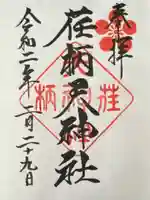 奉拝
荏柄天神社
令和二年二月二十九日
荏
柄